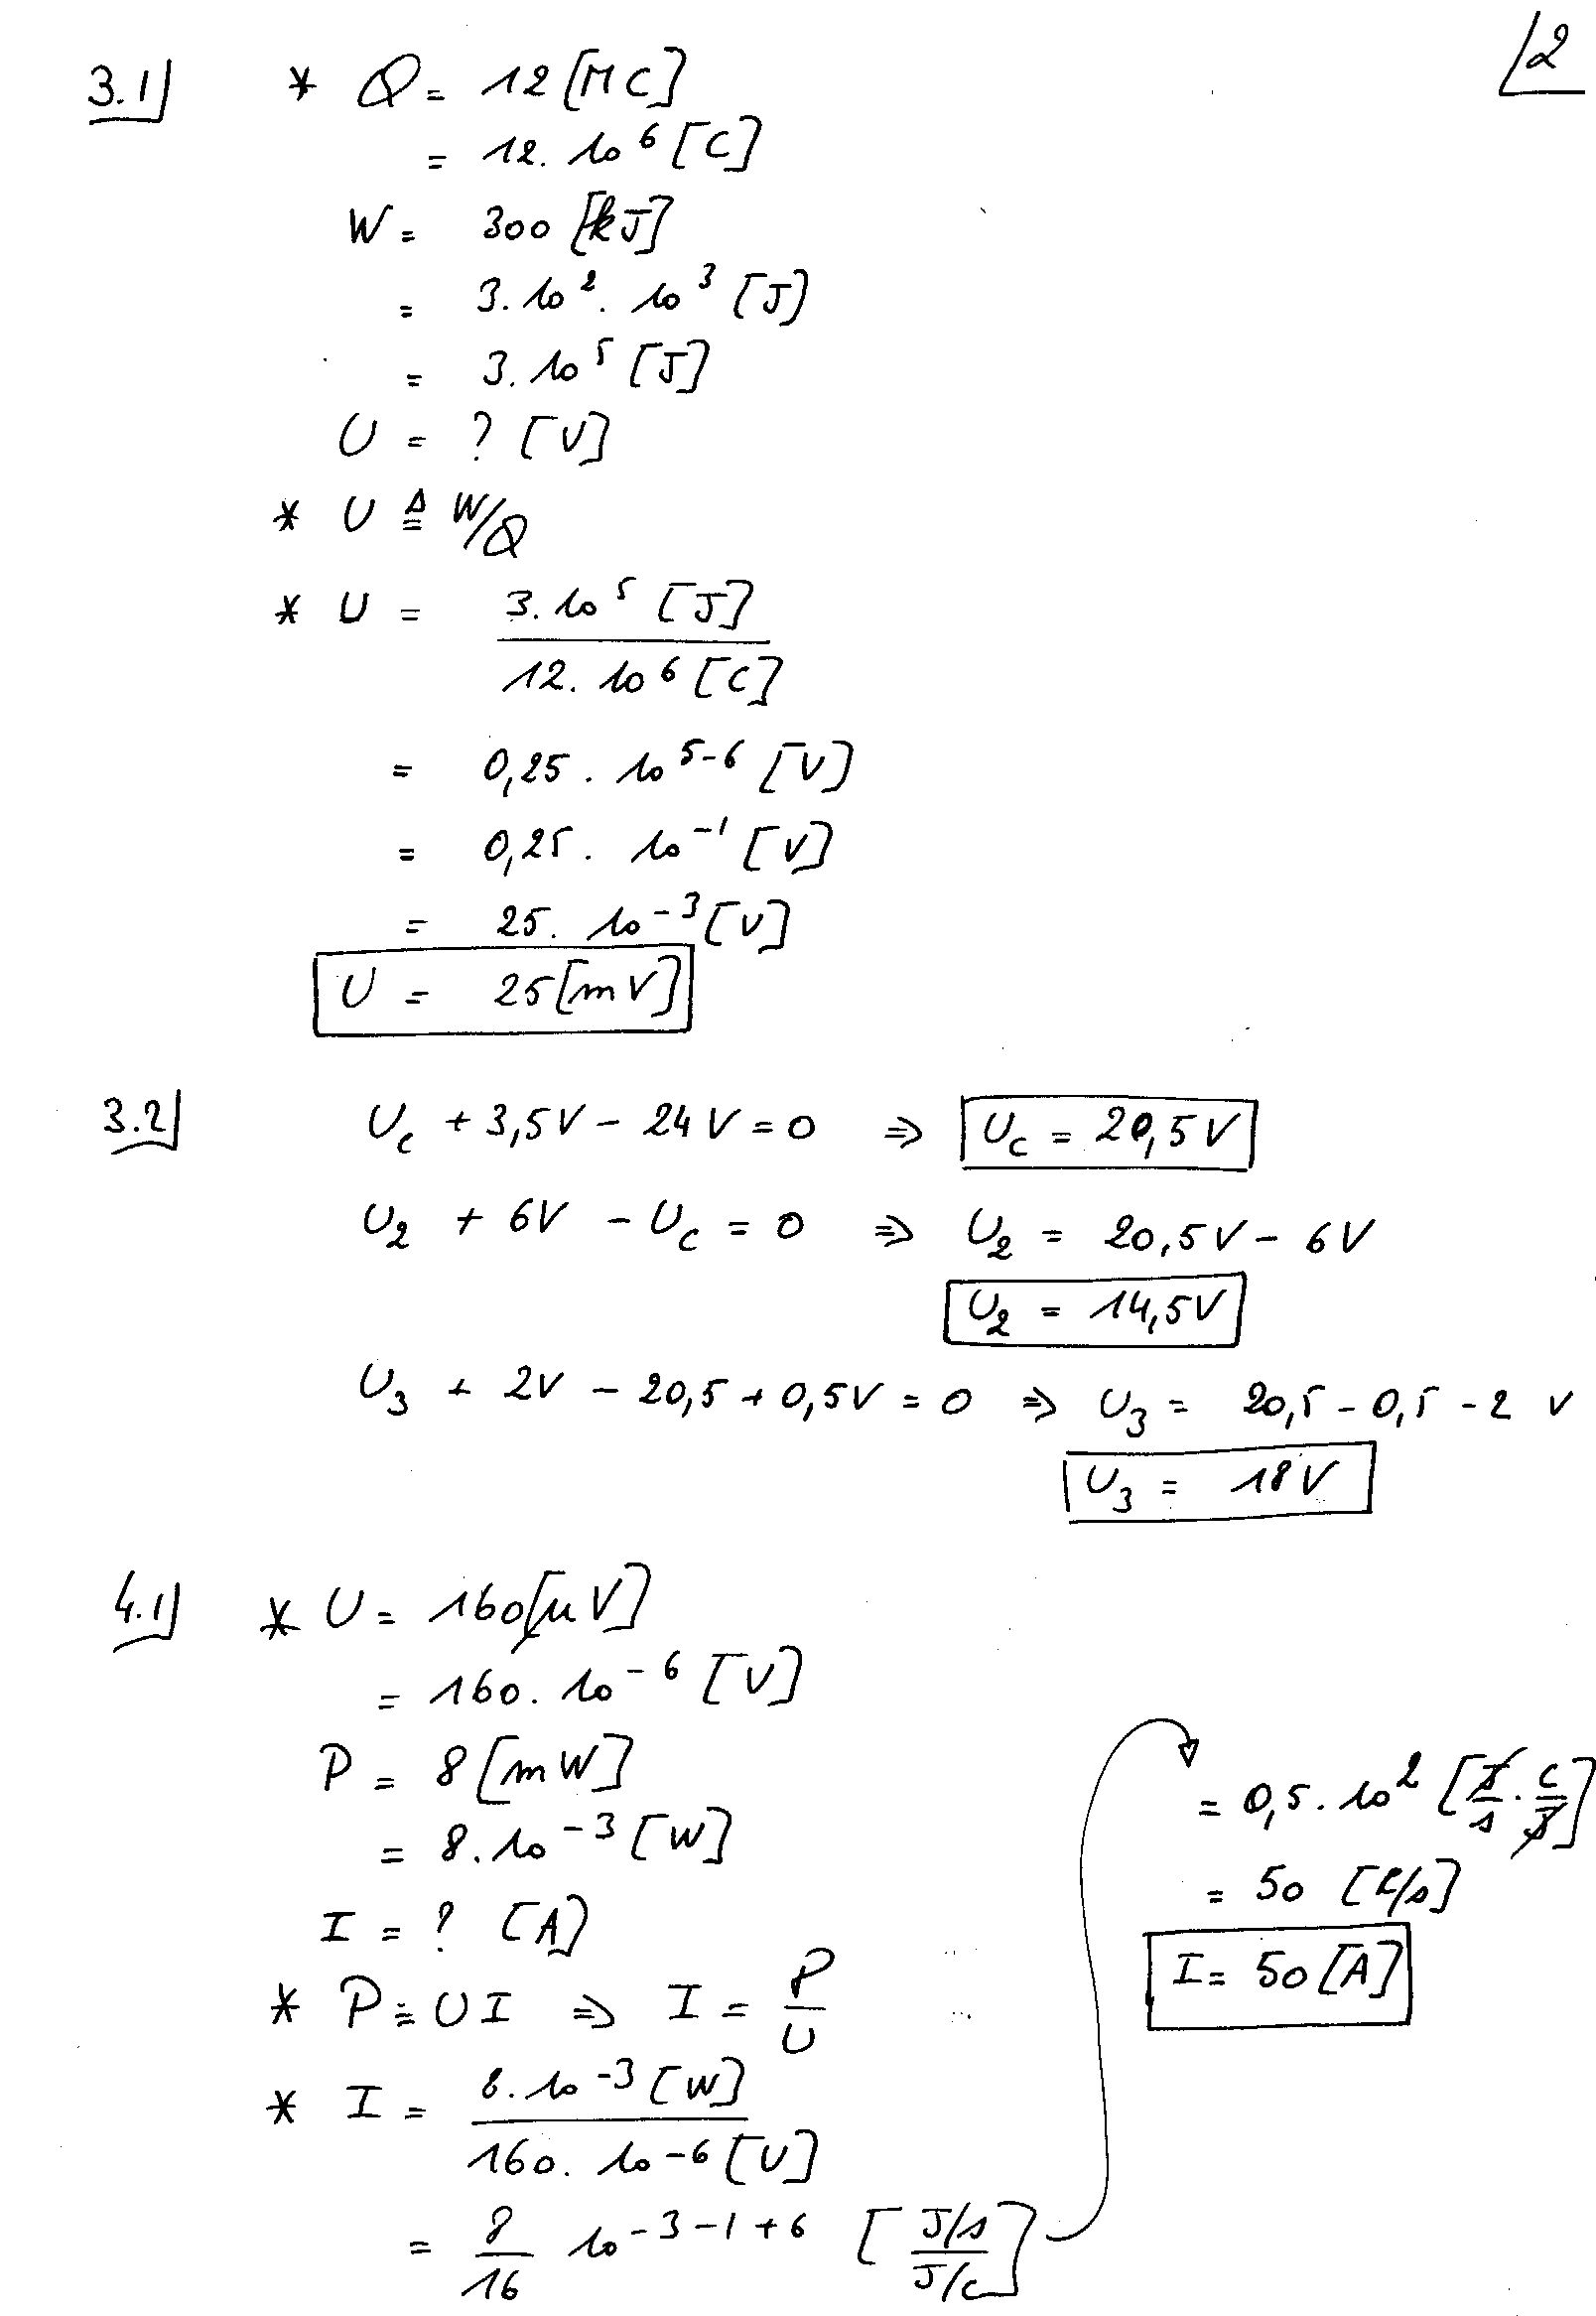 2
3.1 * Q = 12 [MC]
= 12. 10⁶ [C]
W = 300 [kJ]
= 3. 10². 10³ [J]
= 3. 10⁵ [J]
U = ? [V]
* U ≜ W/Q
* U = 3. 10⁵ [J] / 12. 10⁶ [C]
= 0,25. 10⁵⁻⁶ [V]
= 0,25. 10⁻¹ [V]
= 25. 10⁻³ [V]
U = 25 [mV]
3.2 U_c + 3,5V - 24V = 0 ⇒ U_c = 20,5V
U₂ + 6V - U_c = 0 ⇒ U₂ = 20,5V - 6V
U₂ = 14,5V
U₃ + 2V - 20,5 + 0,5V = 0 ⇒ U₃ = 20,5 - 0,5 - 2 V
U₃ = 18V
4.1 * U = 160 [µV]
= 160. 10⁻⁶ [V]
P = 8 [mW]
= 8. 10⁻³ [W]
I = ? [A]
* P ≜ UI ⇒ I = P/U
* I = 8. 10⁻³ [W] / 160. 10⁻⁶ [V]
= 8/16 10⁻³⁻¹⁺⁶ [J/s / J/C]
= 0,5. 10² [J/s . C/J]
= 50 [C/s]
I = 50 [A]